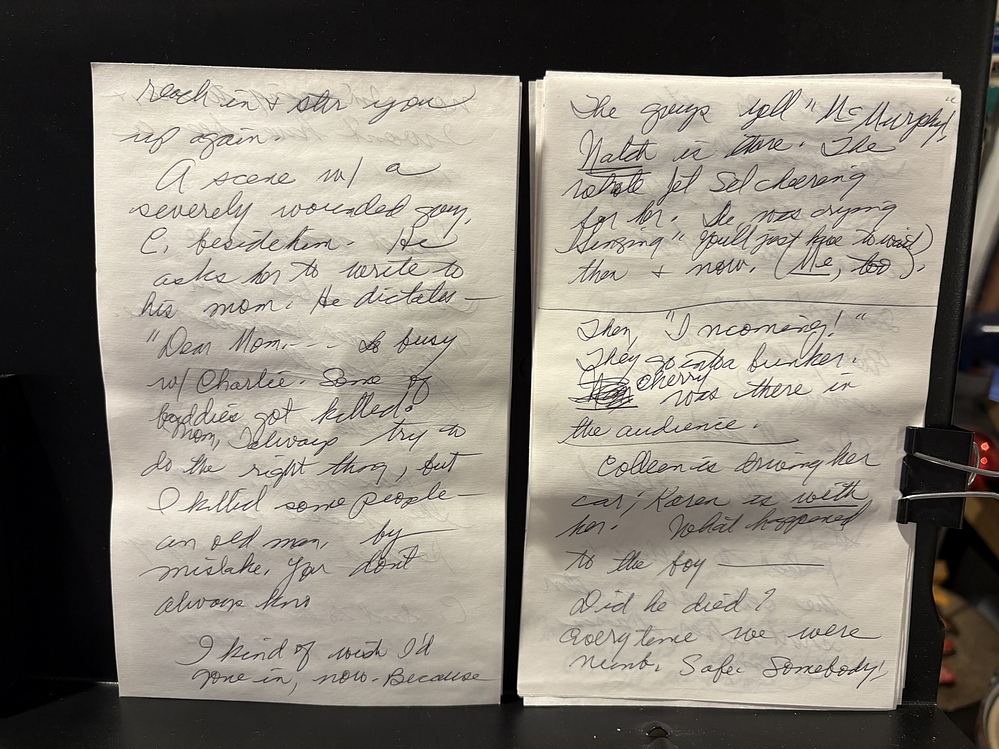 reach in & stir you
up again.
A scene w/ a
severely wounded guy,
C. beside him. He
asks her to write to
his mom. He dictates —
"Dear Mom.... So busy
w/ Charlie. Some of
buddies got killed.
Mom, I always try to
do the right thing, but
I killed some people —
an old man, by
mistake. You don't
always kno
I kind of wish I'd
gone in, now. Because
The guys yell "McMurphy!"
Natch is there. The
whole
cheering
for her. He was crying
singing "You'll just have to wait)
then & now. (Me, too).
Then, "Incoming!"
They go into a bunker.
Cherry
was there in
the audience.
Colleen is driving her
car; Karen is with
her. What happened
to the boy —
Did he died?
Everytime we were
numb. Safe. Somebody!